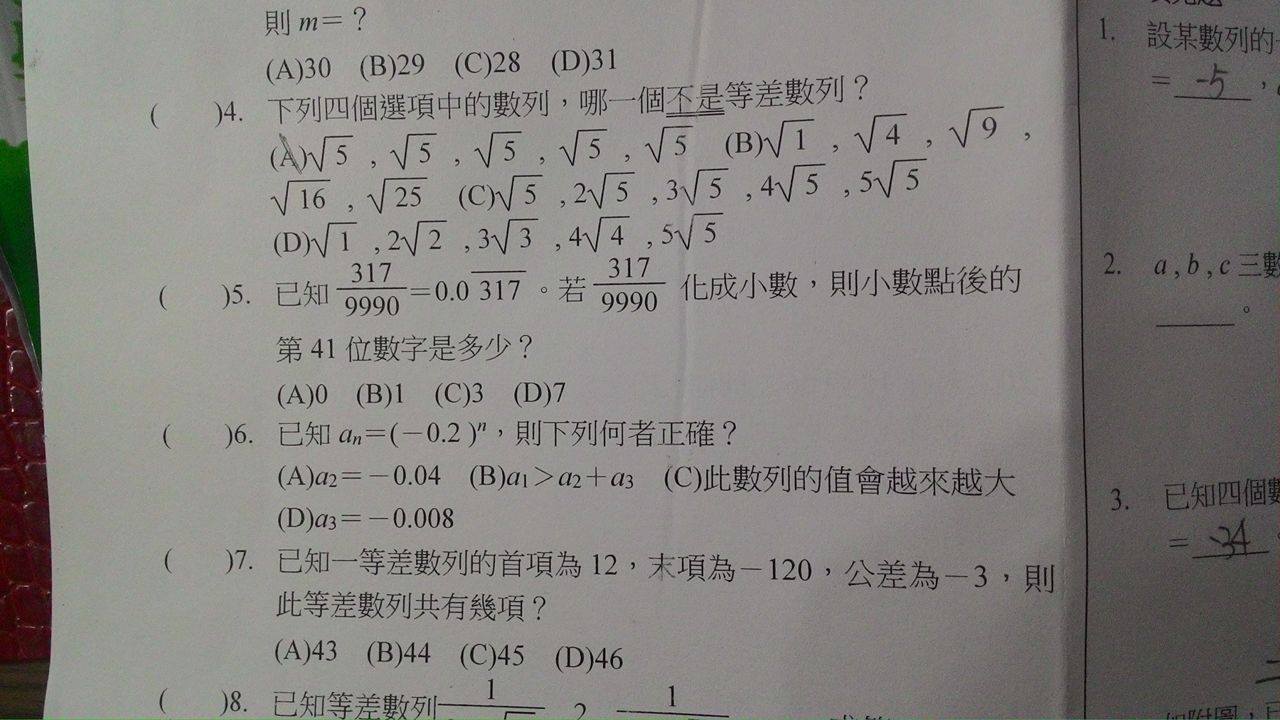 則 m＝？
(A)30 (B)29 (C)28 (D)31
( )4. 下列四個選項中的數列，哪一個不是等差數列？
(A)√5 , √5 , √5 , √5 , √5 (B)√1 , √4 , √9 ,
√16 , √25 (C)√5 , 2√5 , 3√5 , 4√5 , 5√5
(D)√1 , 2√2 , 3√3 , 4√4 , 5√5
( )5. 已知 317/9990＝0.0 3̅1̅7̅ 。若 317/9990 化成小數，則小數點後的
第 41 位數字是多少？
(A)0 (B)1 (C)3 (D)7
( )6. 已知 aₙ＝(－0.2 )ⁿ，則下列何者正確？
(A)a₂＝－0.04 (B)a₁＞a₂＋a₃ (C)此數列的值會越來越大
(D)a₃＝－0.008
( )7. 已知一等差數列的首項為 12，末項為－120，公差為－3，則
此等差數列共有幾項？
(A)43 (B)44 (C)45 (D)46
( )8. 已知等差數列
1. 設某數列的
＝ -5 ，
2. a , b , c 三數
。
3. 已知四個數
＝ -34